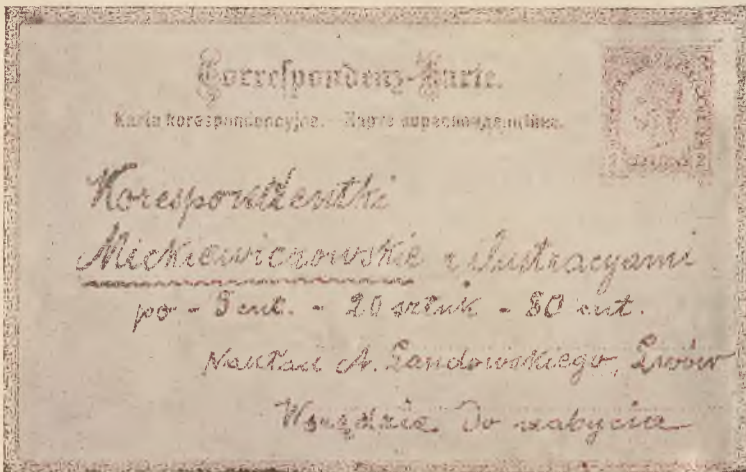 Correspondenz-Karte.
Karta korespondencyjna. — Карта кореспонденційна.
Korespondentki
Mickiewiczowskie z ilustracyami
po - 5 cnt. - 20 sztuk - 80 cnt.
Nakład A. Landowskiego, Lwów
Wszędzie do nabycia